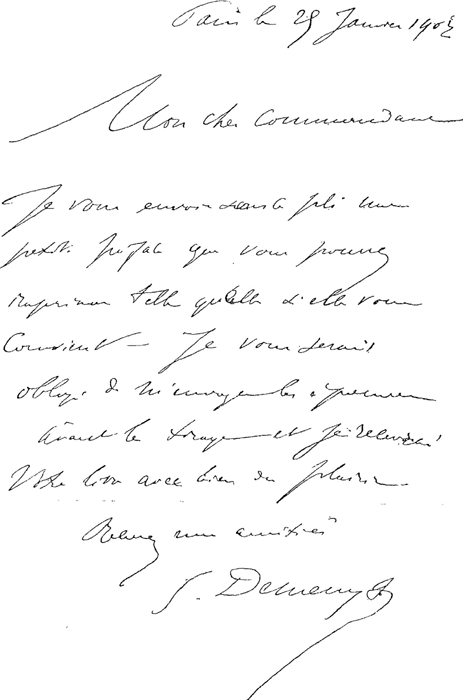 Paris le 29 Janvier 1902
Mon cher Commandant
Je vous envoie dans ce pli une
petite préface que vous pourrez
imprimer telle qu'elle si elle vous
convient — Je vous serais
obligé de m'envoyer les épreuves
avant le tirage et je relirai
votre livre avec bien du plaisir.
Recevez mes amitiés
G. Demenÿ